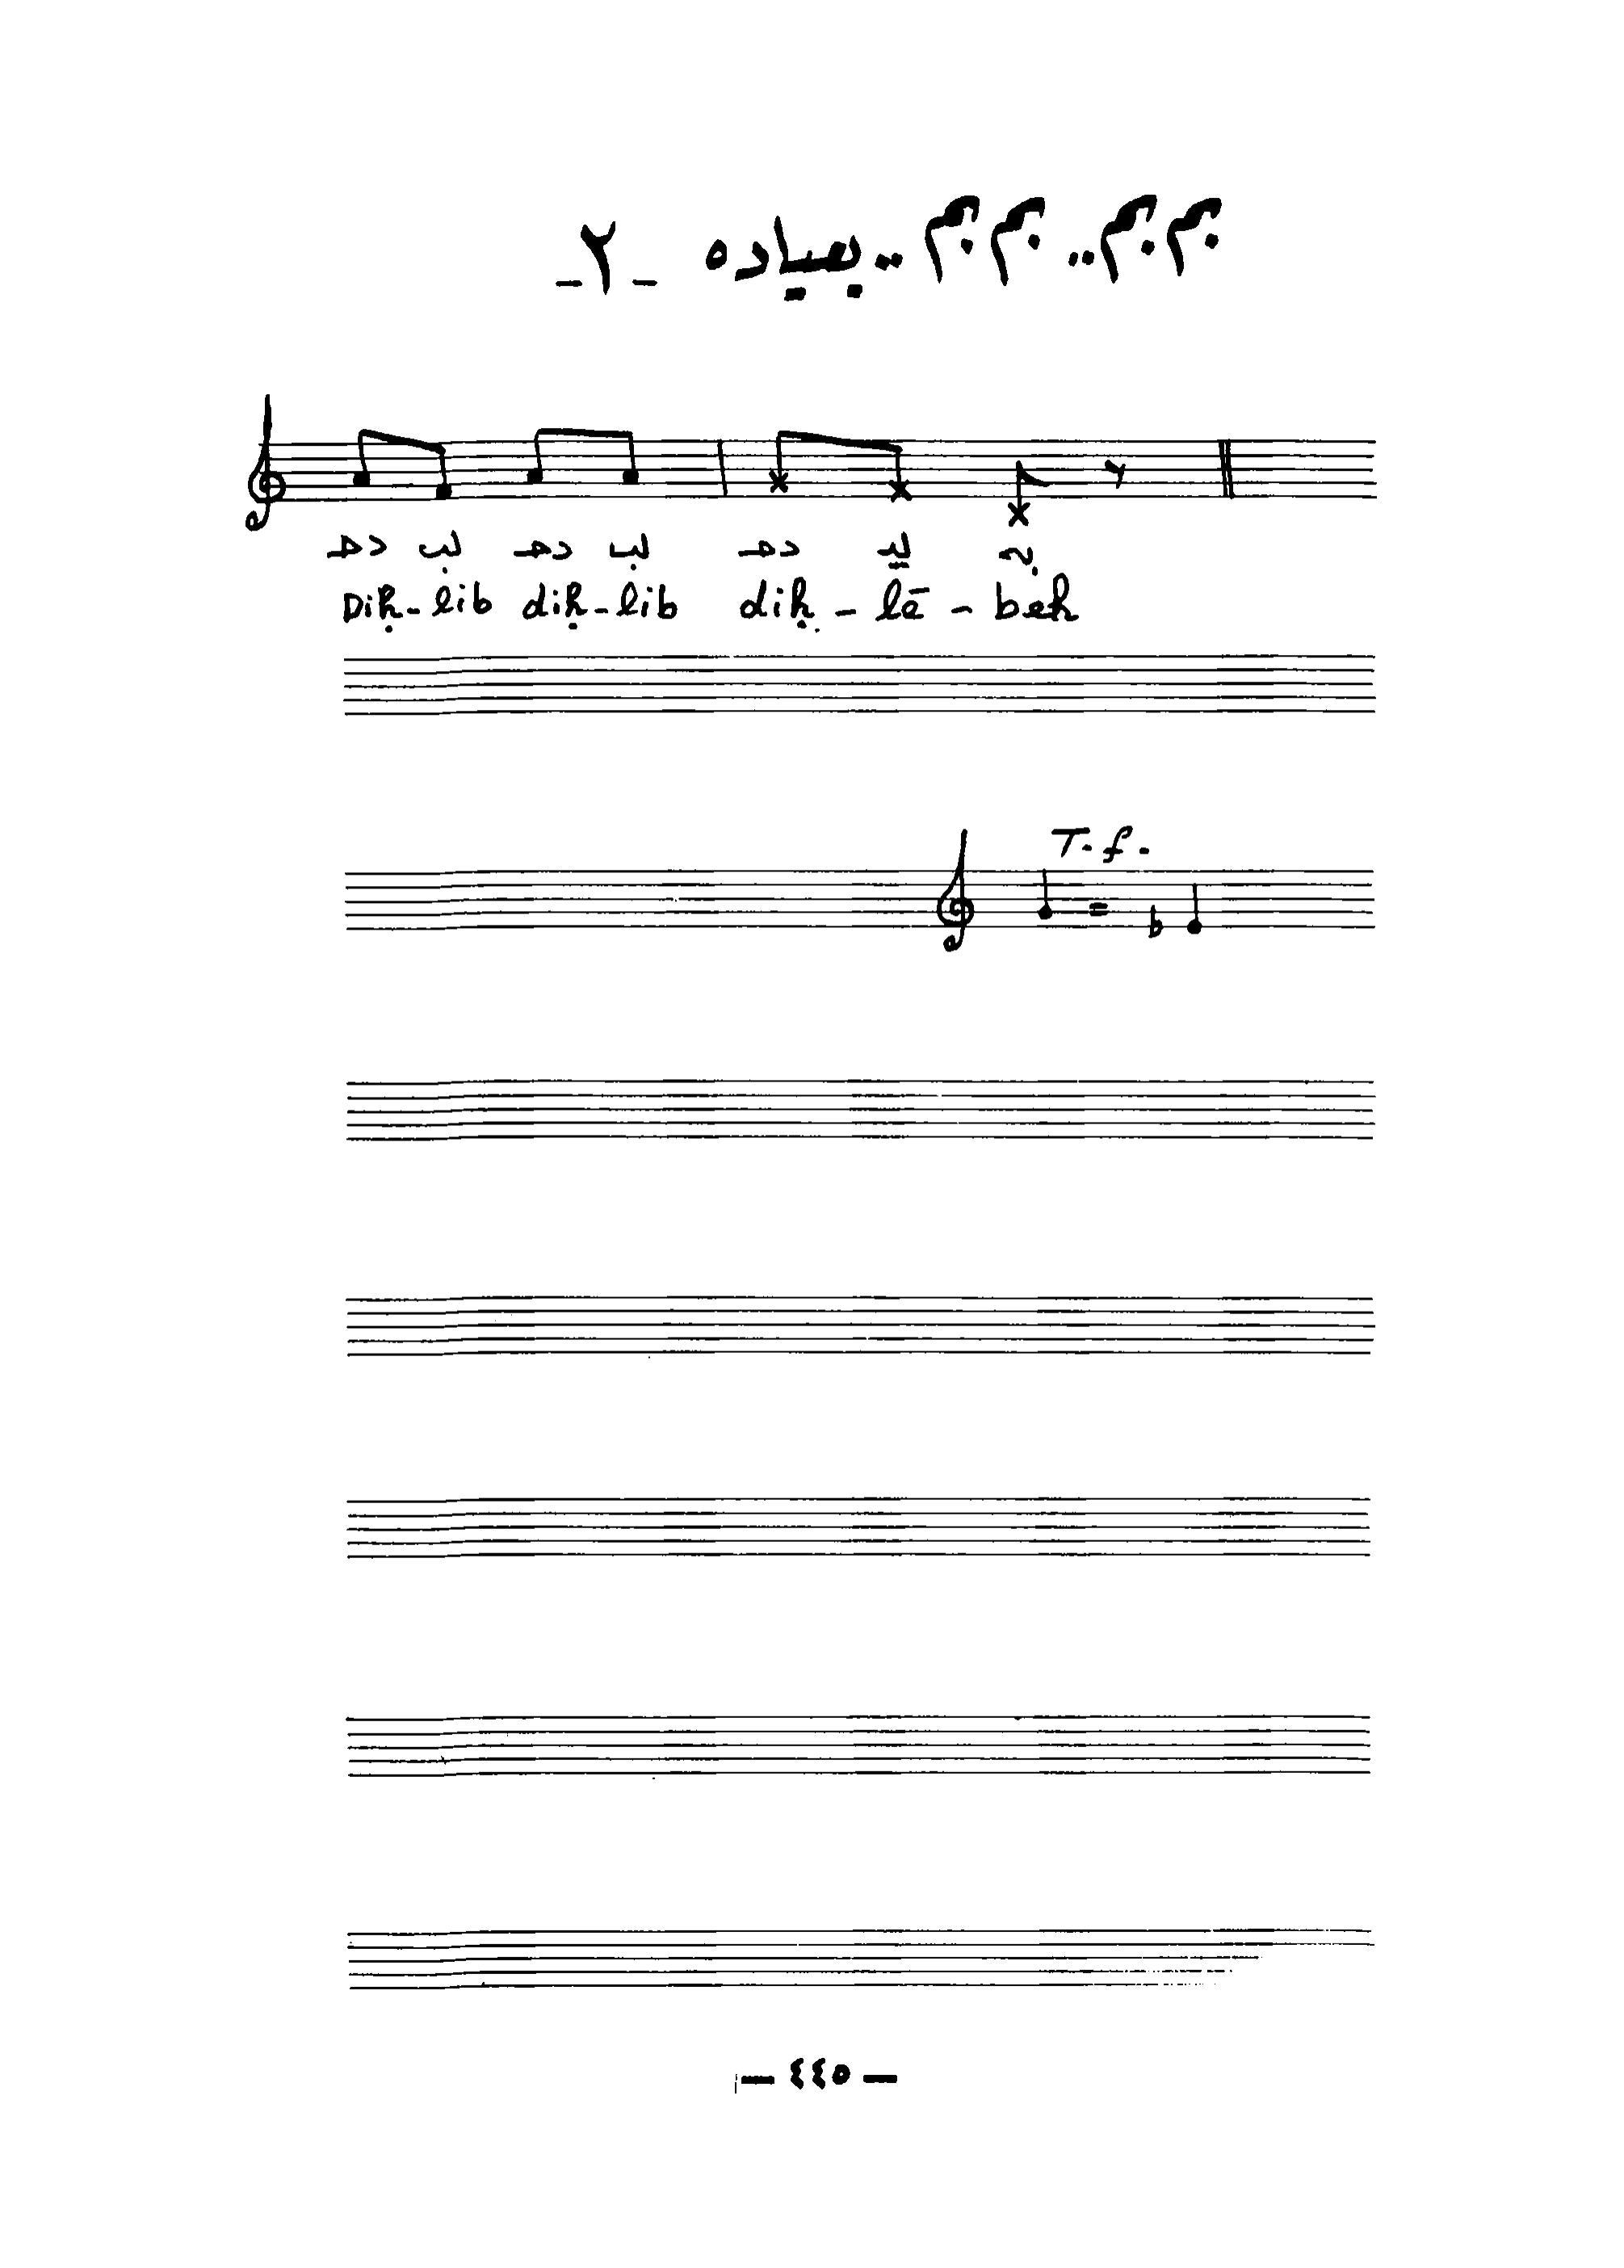 بم بم.. بم بم.. بصياده -٢-
دهـ لب دهـ لب دهـ ليـ بهـ
Diḥ-lib diḥ-lib diḥ-lē-beh
T.f.
-٤٤٥-